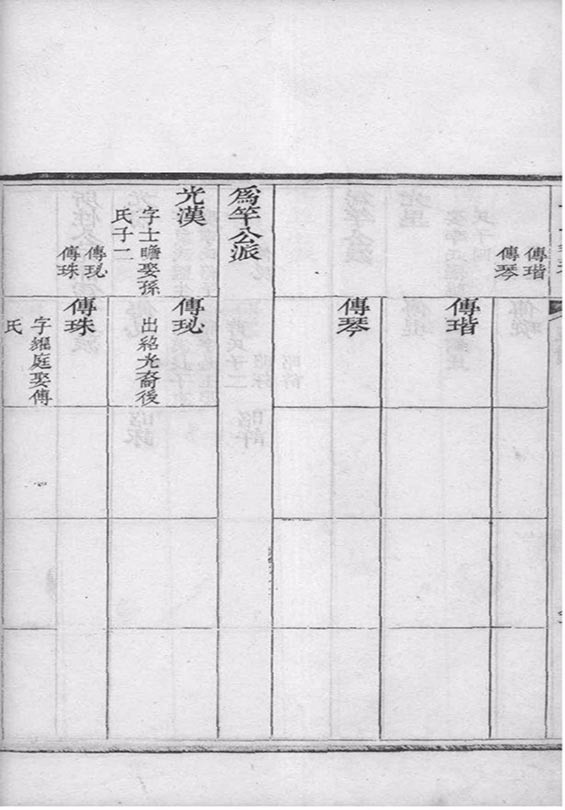 傳瑎
傳琴
傳瑎
傳琴
爲竿公派
光漢
字士瞻娶孫
氏子二
傳珗
傳珠
傳珗
出紹光裔後
傳珠
字緝庭娶傳
氏